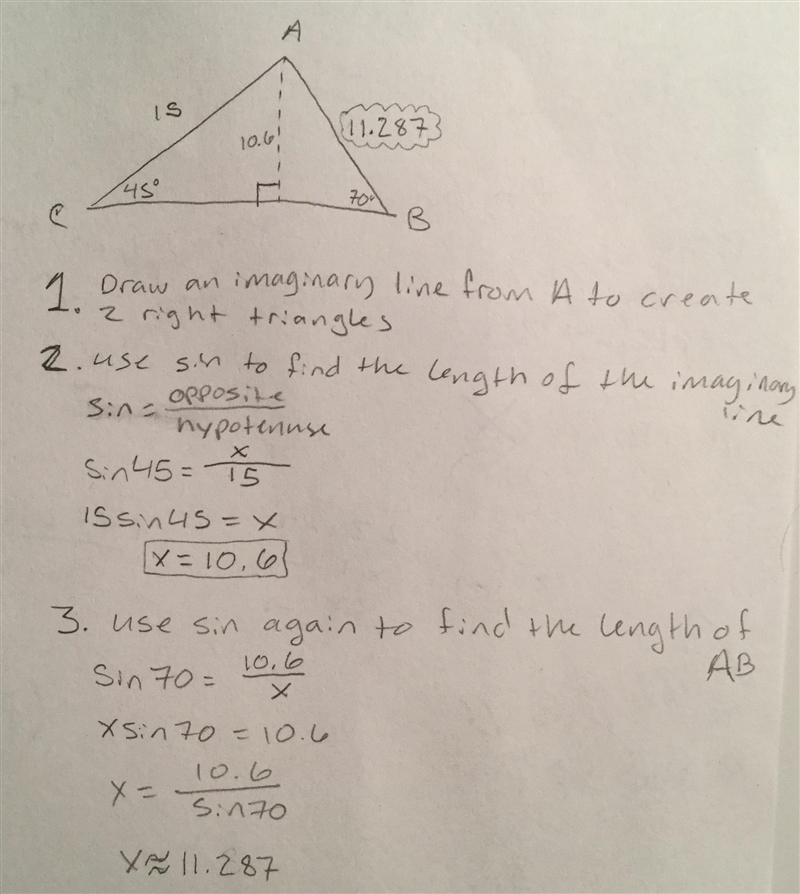 A
15
11.287
10.6
45°
70°
C
B
1. Draw an imaginary line from A to create
2 right triangles
2. use sin to find the length of the imaginary
line
sin = opposite/hypotenuse
sin45 = x/15
15sin45 = x
x = 10.6
3. use sin again to find the length of
AB
sin70 = 10.6/x
xsin70 = 10.6
x = 10.6/sin70
x ≈ 11.287